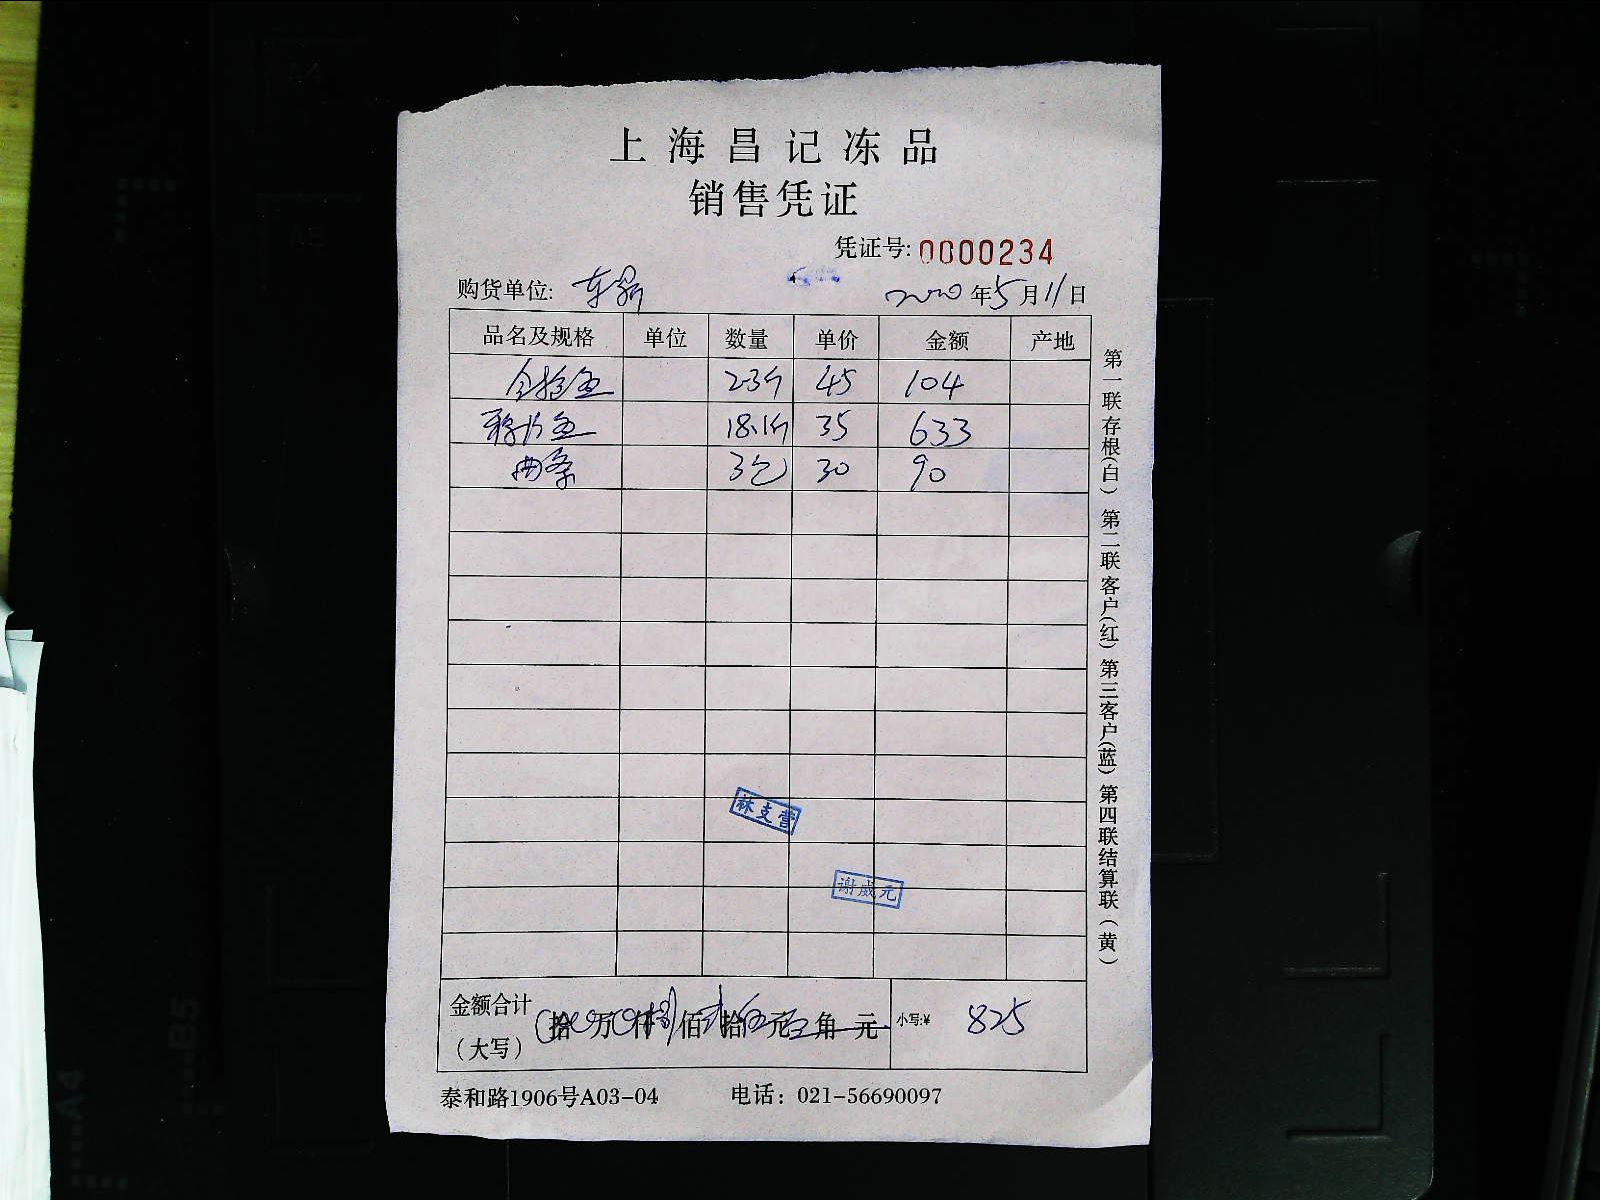 上海昌记冻品
销售凭证
凭证号: 0000234
购货单位: 东新 2020年5月11日
品名及规格 单位 数量 单价 金额 产地
23个 45 104
18.1斤 35 633
3包 30 90
林支营
谢威元
金额合计(大写) 拾 万 仟 捌佰 贰拾 伍元 角 元 小写:¥ 825
泰和路1906号A03-04 电话: 021-56690097
第一联存根(白) 第二联客户(红) 第三客户(蓝) 第四联结算联(黄)